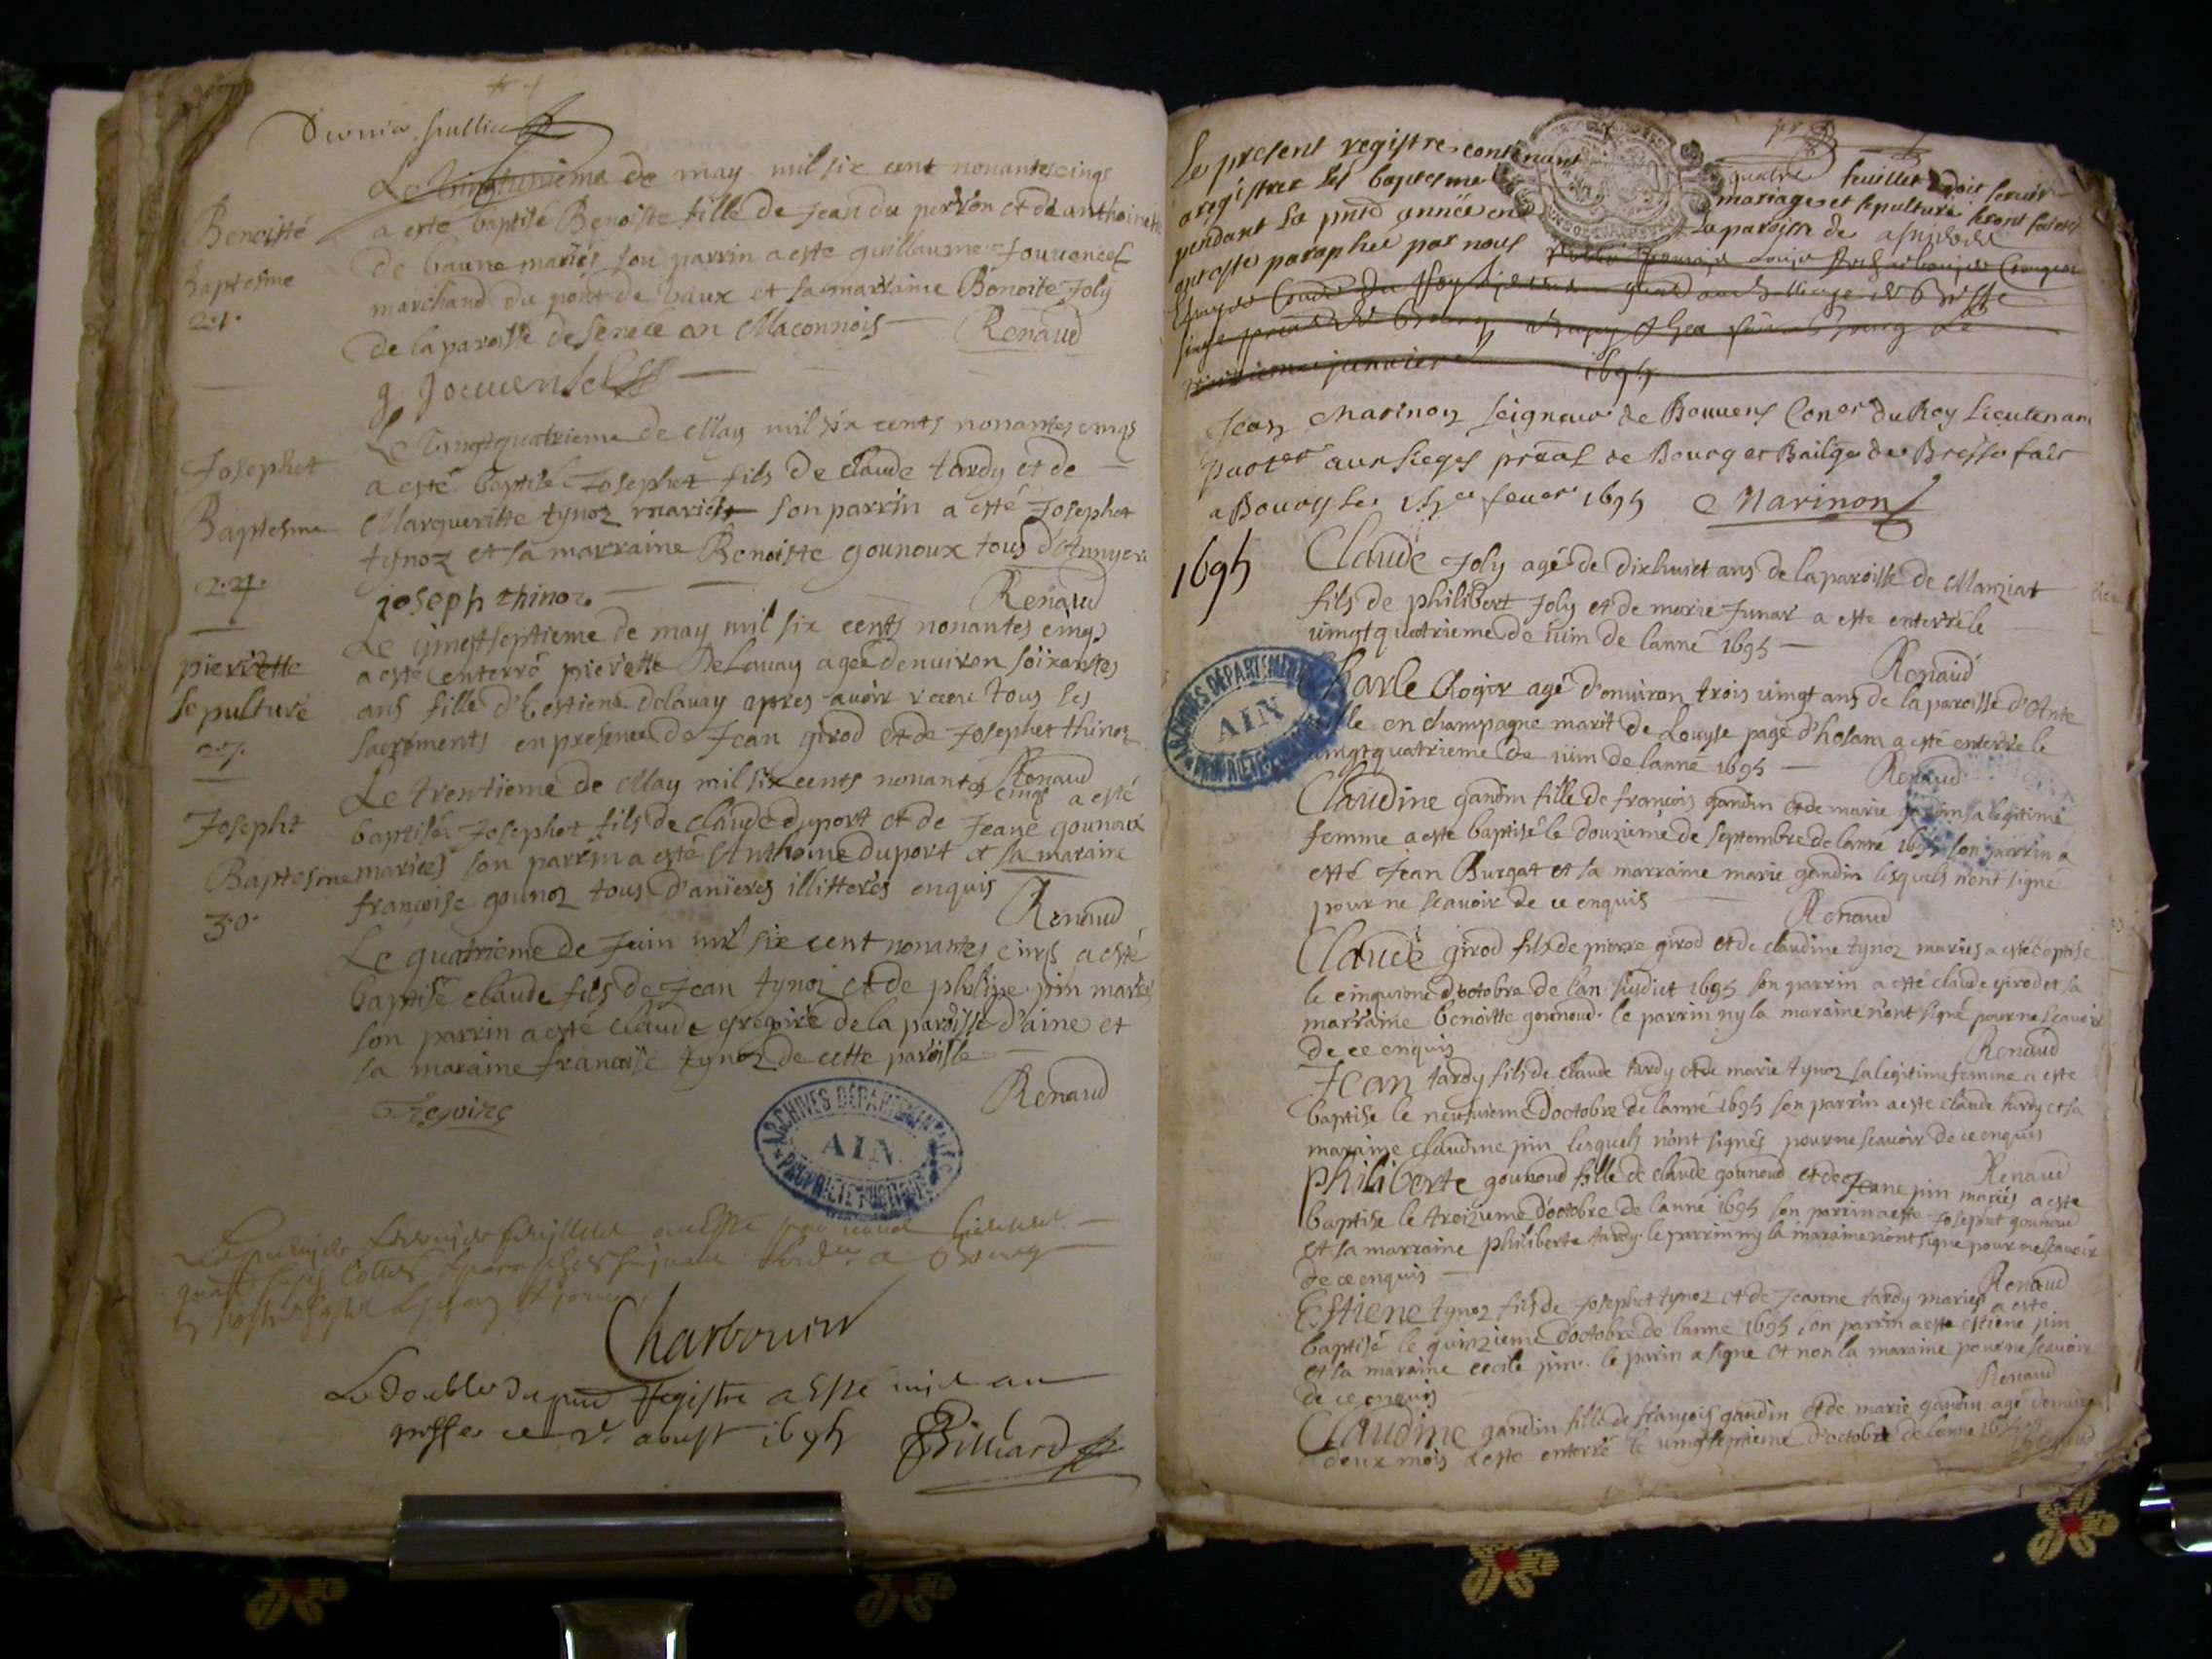 Dernier feullet
Le vingtunieme de may mil six cent nonantes cinqs
Benoisté
a esté baptisé Benoiste fille de Jean du perron et de anthoinette
de baune mariés son parrin a esté guillaume Jouvencel
Baptesme
marchand du pont de vaux et sa marraine Benoite Joly
21.
de la paroisse de senecé en Maconnois Renaud
g Jouuencel
Le vingtquatrieme de May mil six cents nonantes cinqs
Josephet
a esté baptisé Josephet fils de Claude tardy et de
Baptesme
Margueritte tynoz mariés son parrin a esté Josephet
tynoz et sa marraine Benoiste gounoux tous d'Annyere
24.
joseph thinoz Renaud
Le vingtseptieme de may mil six cents nonantes cinqs
pierrette
a esté enterré pierette Delauay agée denuiron soixantes
sepulture
ans fille d'Estiene delauay apres auoir receu tous les
27.
sacrements en presence de Jean girod et de Josephet thinoz
Renaud
Le trentieme de May mil six cents nonantes cinqs a esté
Josepht
baptisé Josephet fils de claude duport et de Jeane gounoux
Baptesme
mariées son parrin a esté Anthoine duport et sa maraine
30.
françoise gounoz tous d'anieres illitterés enquis
Renaud
Le quatrieme de Juin mil six cent nonantes cinqs a esté
baptisé claude fils de Jean tynoz et de philipe pin mariés
son parrin a esté claude gregoire de la paroisse d'aine et
sa maraine françoise tynoz de cette paroisse
Renaud
Gregoire
ARCHIVES DÉPARTEMENTALES
AIN
PROPRIÉTÉ PUBLIQUE
Charbonnier
Le double du pnt Registre a esté mis au
greffe ce 2e aoust 1695 Billiard
Le present registre contenant quatre feuillet doit seruir
a registrer les baptesme mariage et sepulture seront faictes
pendant la pnte année en la paroisse de asnieres
ont esté paraphée par nous
janvier 1695
Jean Marinon seigneur de Bouuens Coner du Roy Lieutenant
parter aux sieges pral de Bourg et Bailge de Bresse faict
a Bourg le 15e feuer 1695 Marinon
1695
Claude Joly agé de dixhuict ans de la paroisse de Manziat
fils de philibert Joly et de marie Junar a esté enterré le
vingtquatrieme de iuin de lanné 1695
Renaud
Charle Roger agé d'enuiron trois vingt ans de la paroisse d'Ante
ville en champagne marit de Louyse page d'hosam a esté enterré le
vingtquatrieme de iuin de lanné 1695 Renaud
ARCHIVES DÉPARTEMENTALES
AIN
Claudine gandin fille de françois gandin et de marie sa legitime
femme a esté baptisé le douzieme de septembre de lanné 1695 son parrin a
esté Jean Burgat et sa marraine marie gandin lesquels n'ont signé
pour ne scauoir de ce enquis Renaud
Claude girod fils de pierre girod et de claudine tynoz mariés a esté baptisé
le cinquieme d'octobre de l'an susdict 1695 son parrin a esté claude girod et sa
marraine benoitte gounoud. le parrin ny la maraine n'ont signé pour ne scauoir
de ce enquis Renaud
Jean tardy fils de claude tardy et de marie tynoz sa legitime femme a este
baptise le neufuieme d'octobre de lanné 1695 son parrin a este claude tardy et sa
maraine claudine pin lesquels n'ont signés pour ne scauoir de ce enquis
Renaud
philiberte gounoud fille de claude gounoud et de Jeane pin mariés a este
baptise le treizieme d'octobre de lanné 1695 son parrin a este Josephet gounoud
et sa marraine philiberte tardy le parrin ny la maraine n'ont signé pour ne scauoir
de ce enquis Renaud
Estiene tynoz fils de Josephet tynoz et de Jeanne tardy mariés a este
baptisé le quinzieme d'octobre de lanne 1695 son parrin a este estiene pin
et sa maraine cecile pin. le parin a signé et non la maraine pour ne scauoir
de ce enquis Renaud
Claudine gandin fille de françois gandin et de marie gandin agé denuiron
deux mois a este enterré le vingtseptieme d'octobre de lanne 1695 Renaud